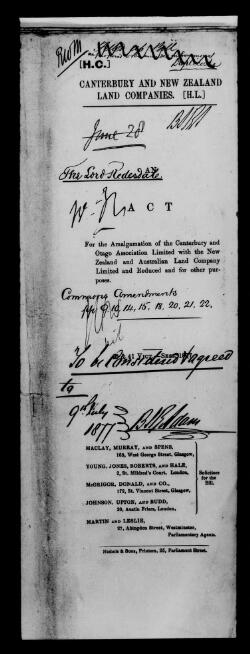 [H.C.]
CANTERBURY AND NEW ZEALAND
LAND COMPANIES. [H.L.]
June 28
The Lord Redesdale
ACT
For the Amalgamation of the Canterbury and
Otago Association Limited with the New
Zealand and Australian Land Company
Limited and Reduced and for other pur-
poses.
Commons Amendments
13, 14, 15. 18. 20. 21. 22.
To be Considered & agreed
to
9th July
1877
MACLAY, MURRAY, AND SPENS,
169, West George Street, Glasgow,
YOUNG, JONES, ROBERTS, AND HALE,
2, St. Mildred's Court, London,
McGRIGOR, DONALD, AND CO.,
172, St. Vincent Street, Glasgow,
JOHNSON, UPTON, AND BUDD,
20, Austin Friars, London,
Solicitors
for the
Bill.
MARTIN AND LESLIE,
27, Abingdon Street, Westminster,
Parliamentary Agents.
Nichols & Sons, Printers, 25, Parliament Street.